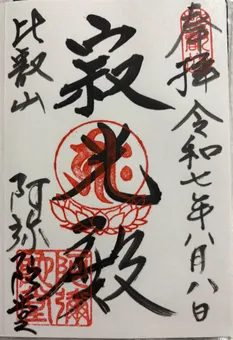 奉拝 令和七年八月八日
寂光殿
比叡山 阿弥陀堂